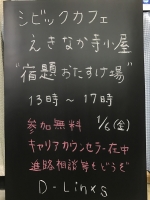 シビックカフェ
えきなか寺小屋
"宿題おたすけ場"
13時～17時
参加無料 1/6(金)
キャリアカウンセラー在中
進路相談等もどうぞ
D-Links